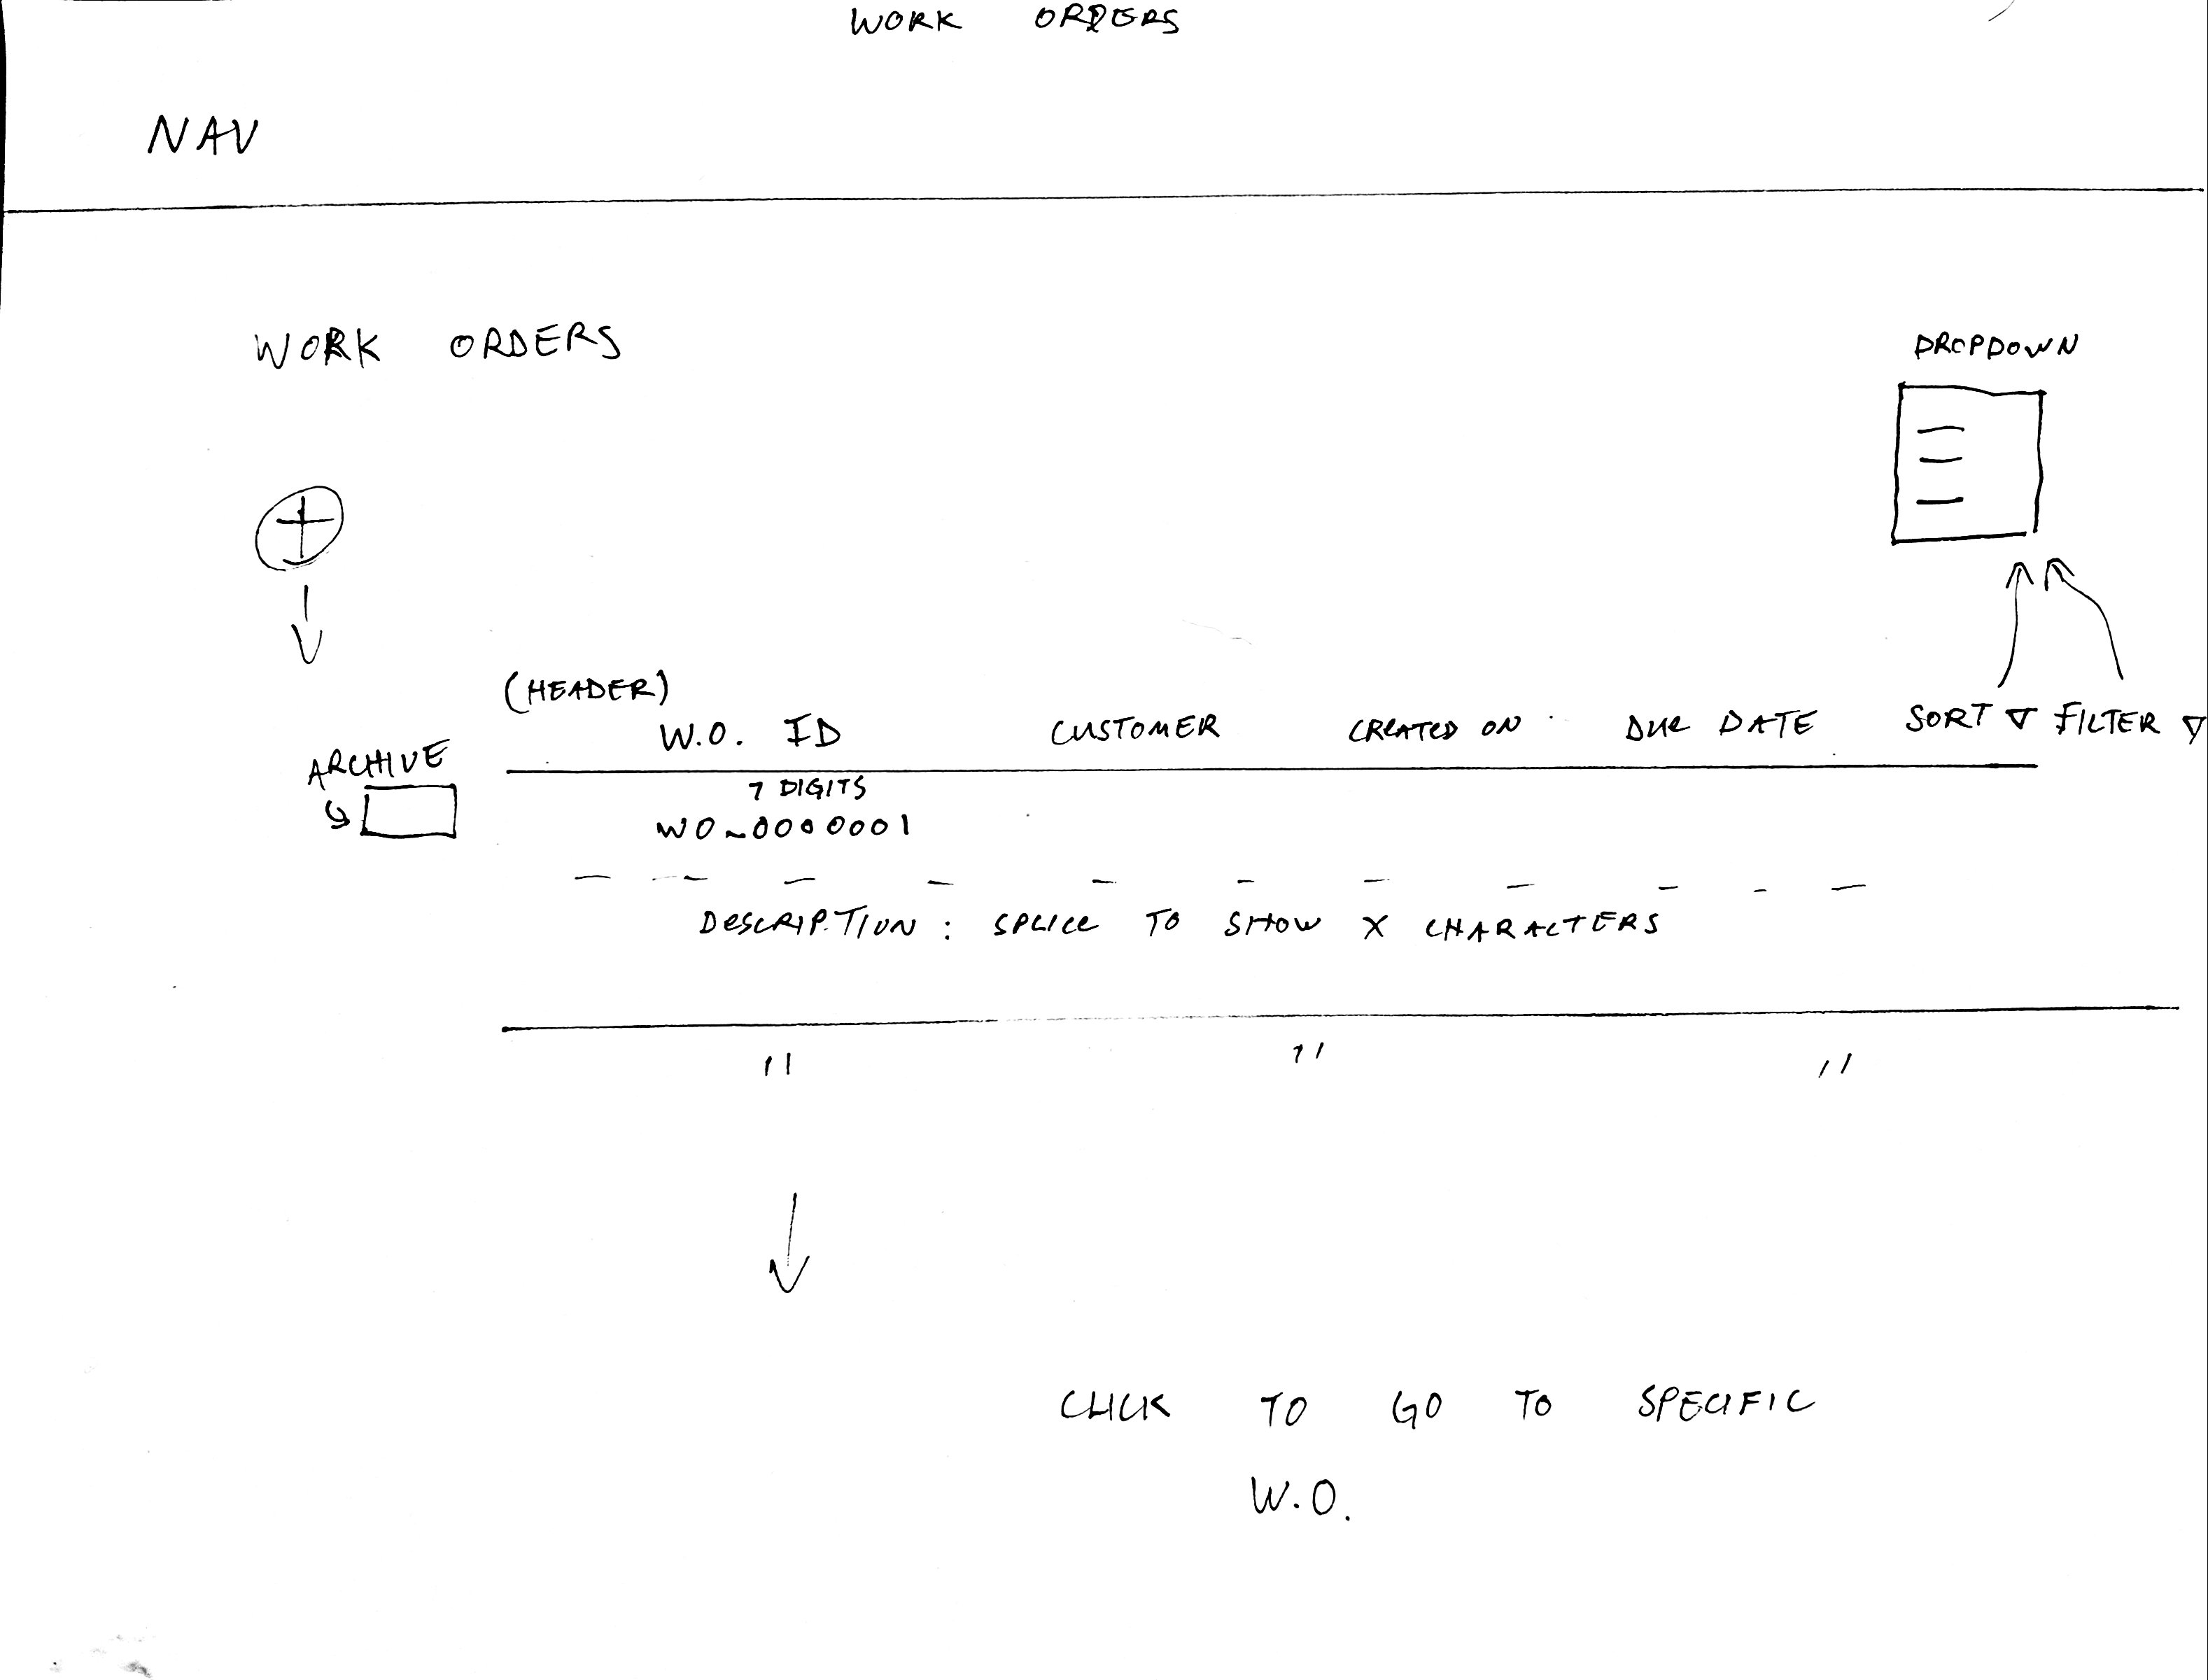 WORK ORDERS
NAV
WORK ORDERS
DROPDOWN
(HEADER)
W.O. ID CUSTOMER CREATED ON DUE DATE SORT ▽ FILTER ▽
ARCHIVE
7 DIGITS
WO-0000001
DESCRIPTION : SPLICE TO SHOW X CHARACTERS
" " "
CLICK TO GO TO SPECIFIC
W.O.